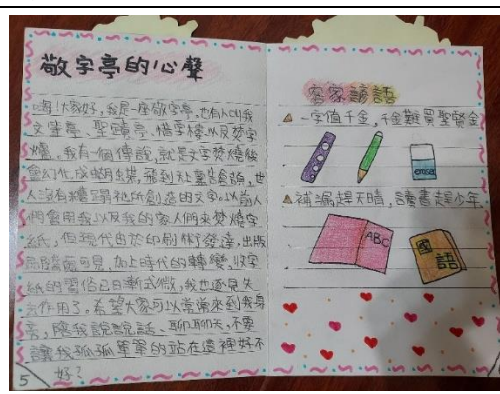 敬字亭的心聲
嗨!大家好,我是一座敬字亭,也有人叫我
文筆亭、聖蹟亭、惜字樓以及焚字
爐。我有一個傳說,就是文字焚燒後
會幻化成蝴蝶,飛到
人們會用我以及我的家人們來焚燒字
紙,但現代由於印刷術發達,出版
品隨處可見,加上時代的轉變,收字
紙的習俗已日漸式微,我也逐見失
去作用了。希望大家可以常常來到我身
旁,陪我說說話、聊聊天,不要
讓我孤孤單單的站在這裡好不
好?
5
客家諺語
一字值千金,千金難買聖賢金
eraser
補漏趕天晴,讀書趕少年。
ABC
國語